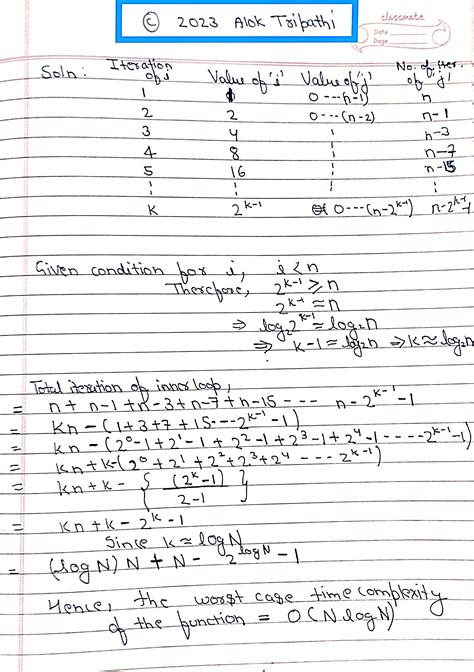 © 2023 Alok Tripathi
classmate
Date
Page
Soln: Iteration of i Value of 'i' Value of 'j' No. of iter. of 'j'
1 1 0---(n-1) n
2 2 0---(n-2) n-1
3 4 n-3
4 8 n-7
5 16 n-15
K 2^k-1 0---(n-2^k-1) n-2^k-1-1
Given condition for i, i<n
Therefore, 2^k-1 ≥ n
2^k-1 ≈ n
⇒ log₂2^k-1 ≈ log₂n
⇒ k-1 ≈ log₂n ⇒ k ≈ log₂n
Total iteration of inner loop,
= n + n-1 + n-3 + n-7 + n-15 --- n-2^k-1-1
= Kn - (1+3+7+15---2^k-1-1)
= Kn - (2^0-1+2^1-1+2^2-1+2^3-1+2^4-1----2^k-1-1)
= Kn+k-(2^0+2^1+2^2+2^3+2^4 --- 2^k-1)
= Kn+k- { (2^k-1) / 2-1 }
= Kn+k-2^k-1
Since k ≈ logN
= (logN)N + N - 2^logN - 1
Hence, the worst case time complexity
of the function = O(N logN)